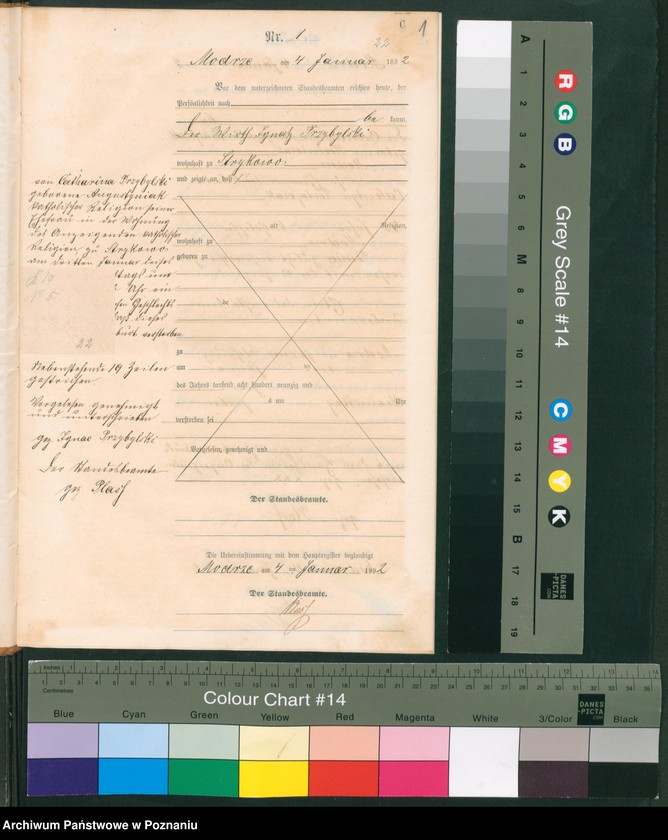 C. 1
Nr. 1
22
Modrze am 4 Januar 1892
Vor dem unterzeichneten Standesbeamten erschien heute, der
Persönlichkeit nach
be kannt,
Der Wirth Ignatz Przybylski
wohnhaft zu Strykowo
und zeigte an, daß
von Catharina Przybylski
geborene Augustyniak
katholischer Religion seiner
Ehefrau in der Wohnung
des Anzeigenden katholischer
Religion, zu Strykowo
am dritten Januar dieses
tags um
Uhr ein
Geschlechts
daß dieses
burt verstorben
22
alt Religion,
wohnhaft zu
geboren zu
de
zu
am
des Jahres tausend acht hundert neunzig und
um Uhr
verstorben sei
Nebenstehende 19 Zeilen
gestrichen.
Vorgelesen genehmigt
und unterschrieben
gez. Ignac Przybylski
Der Standesbeamte
gez
Vorgelesen, genehmigt und
Der Standesbeamte.
Die Uebereinstimmung mit dem Hauptregister beglaubigt
Modrze am 4 ten Januar 1892
Der Standesbeamte.
A 1 2 3 4 5 6 M 8 9 10 11 12 13 14 15 B 17 18 19
R
G
B
Grey Scale #14
C
M
Y
K
DANES
-PICTA
.COM
Inches 1 2 3 4 5 6 7 8 9 10 11 12 13 14
Centimetres 1 2 3 4 5 6 7 8 9 10 11 12 13 14 15 16 17 18 19 20 21 22 23 24 25 26 27 28 29 30 31 32 33 34 35
Colour Chart #14
DANES
-PICTA
.COM
Blue Cyan Green Yellow Red Magenta White 3/Color Black
Archiwum Państwowe w Poznaniu